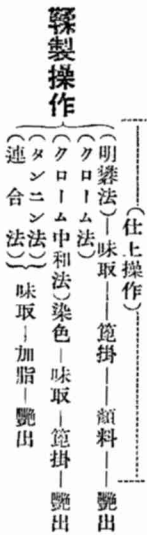 (仕上操作)
鞣製操作
(明礬法)—味取——箆掛——顔料——艶出
(クローム法)
(クローム中和法)染色—味取—箆掛—艶出
(タンニン法)
(連合法)
味取—加脂—艶出